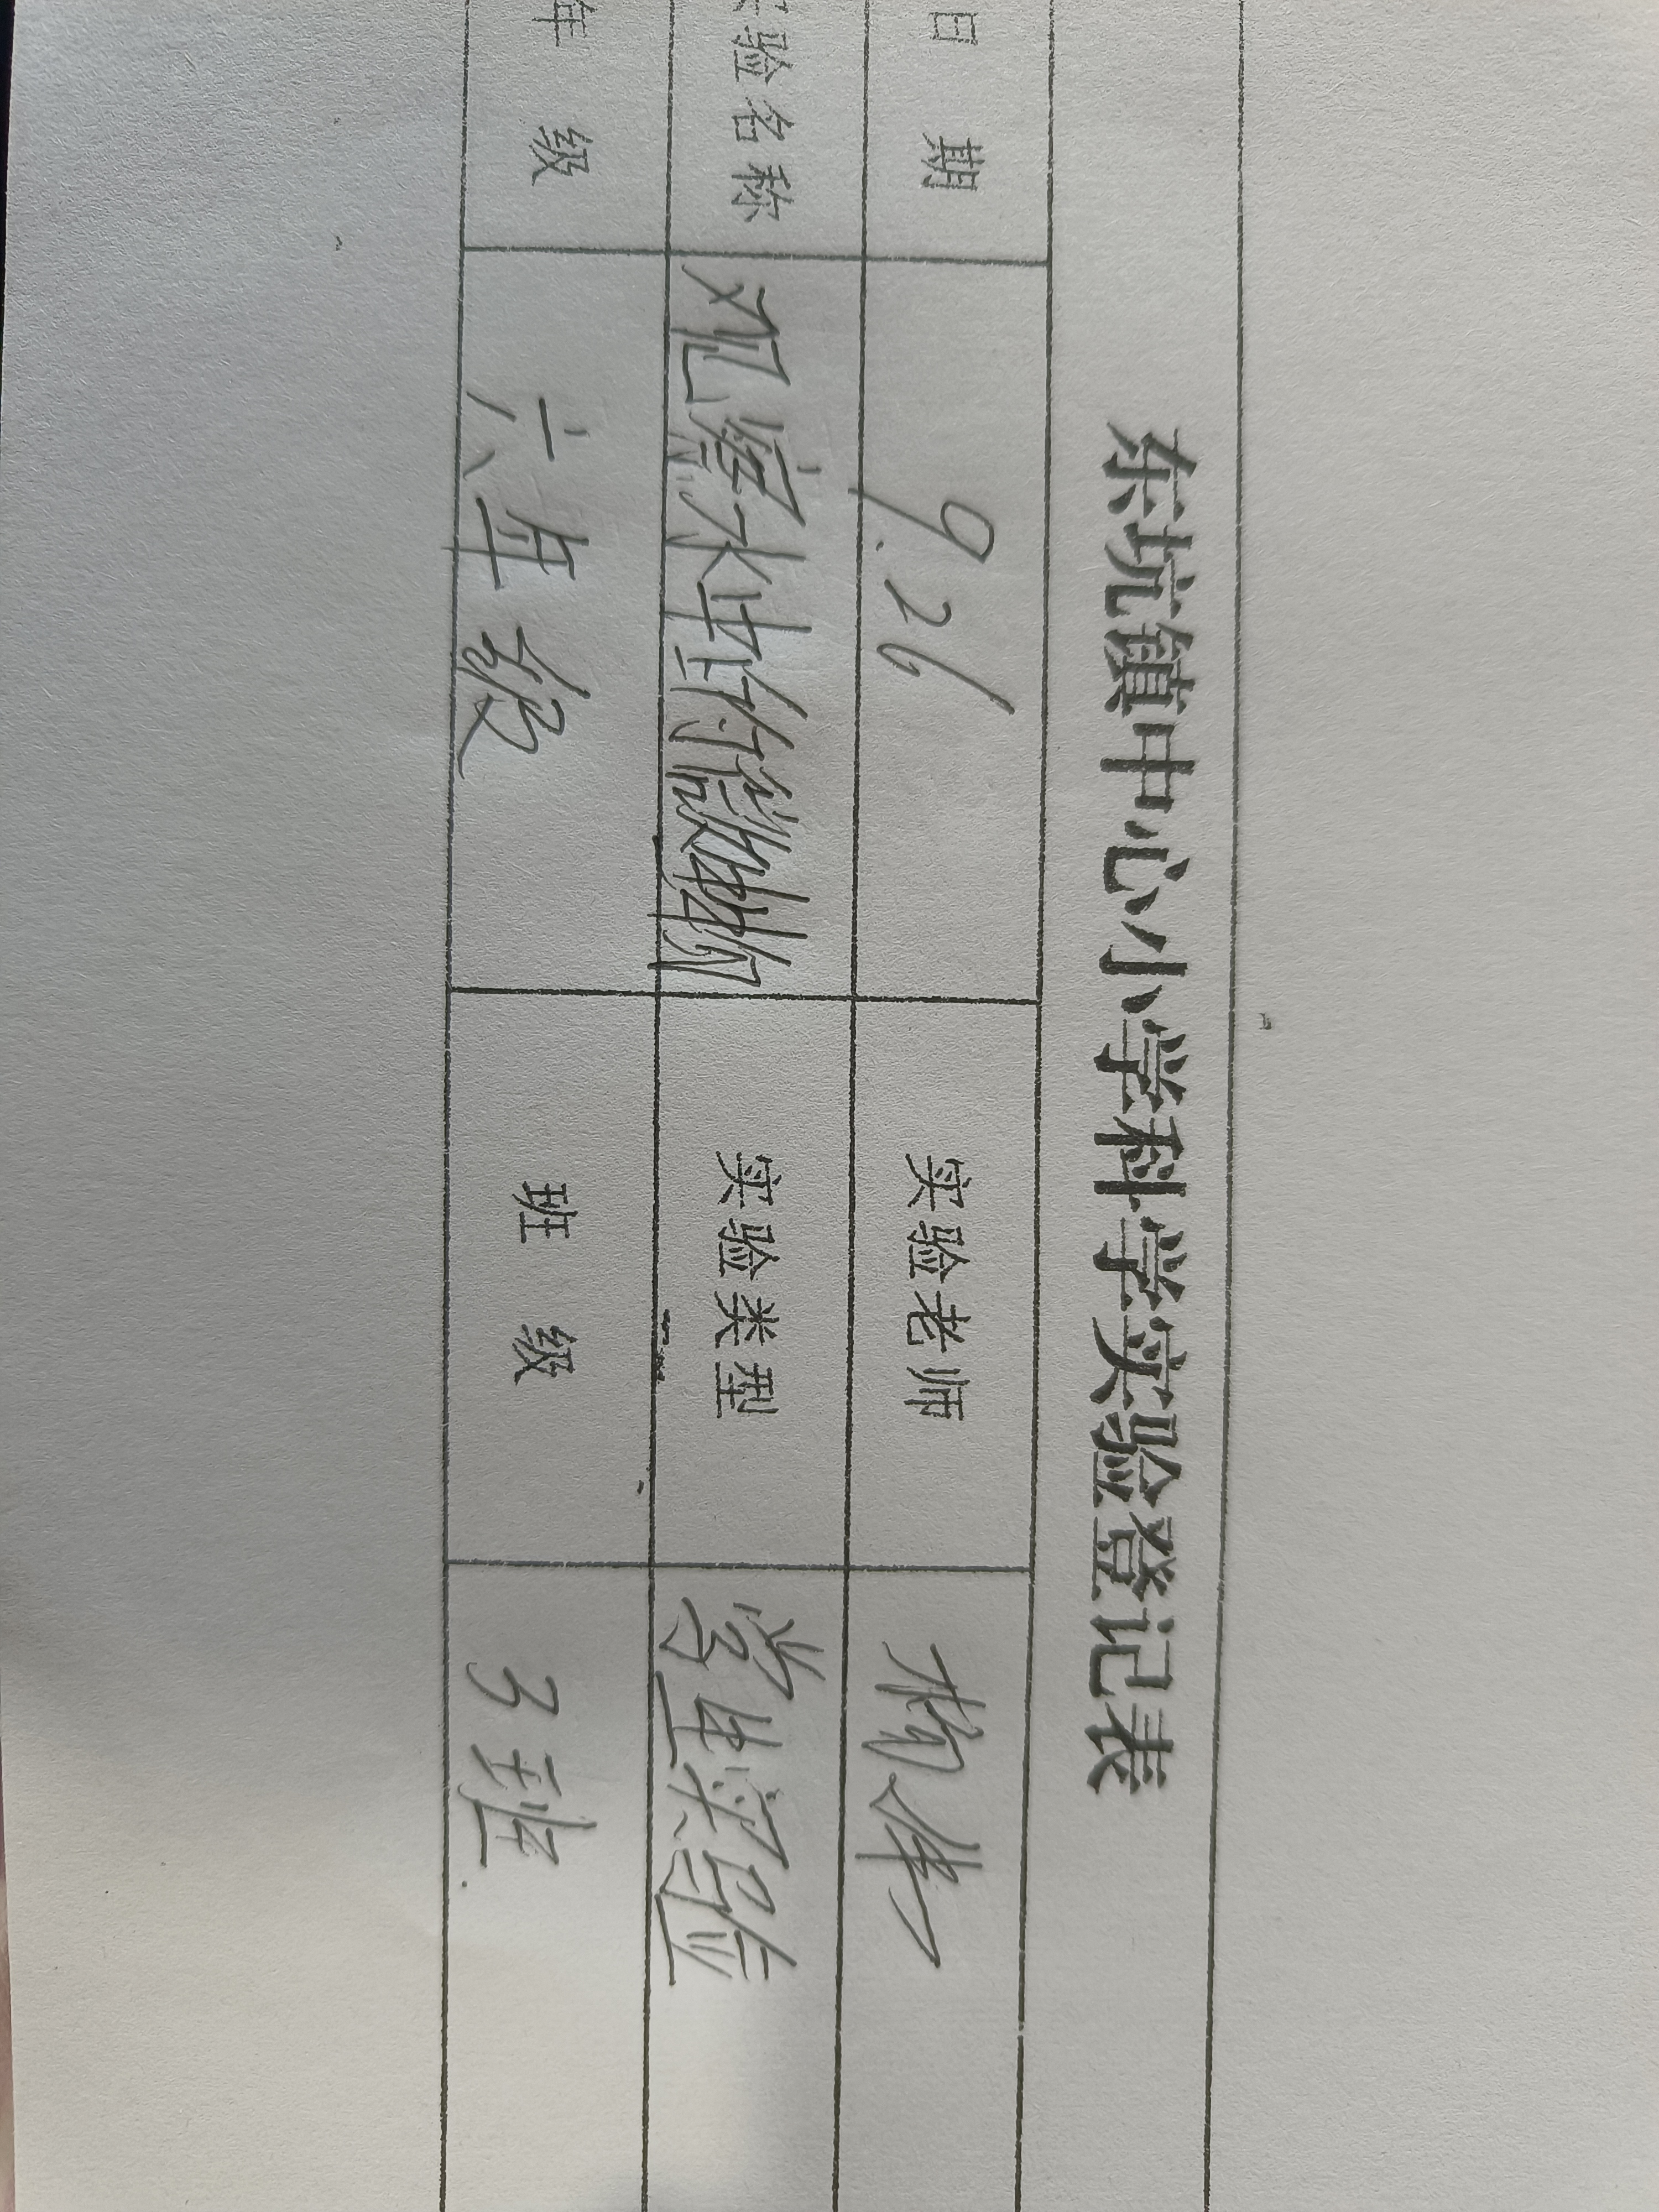 东坑镇中心小学科学实验登记表
日 期 9.26 实验老师
实验名称 观察水中的微生物 实验类型 学生实验
年 级 六年级 班 级 3班